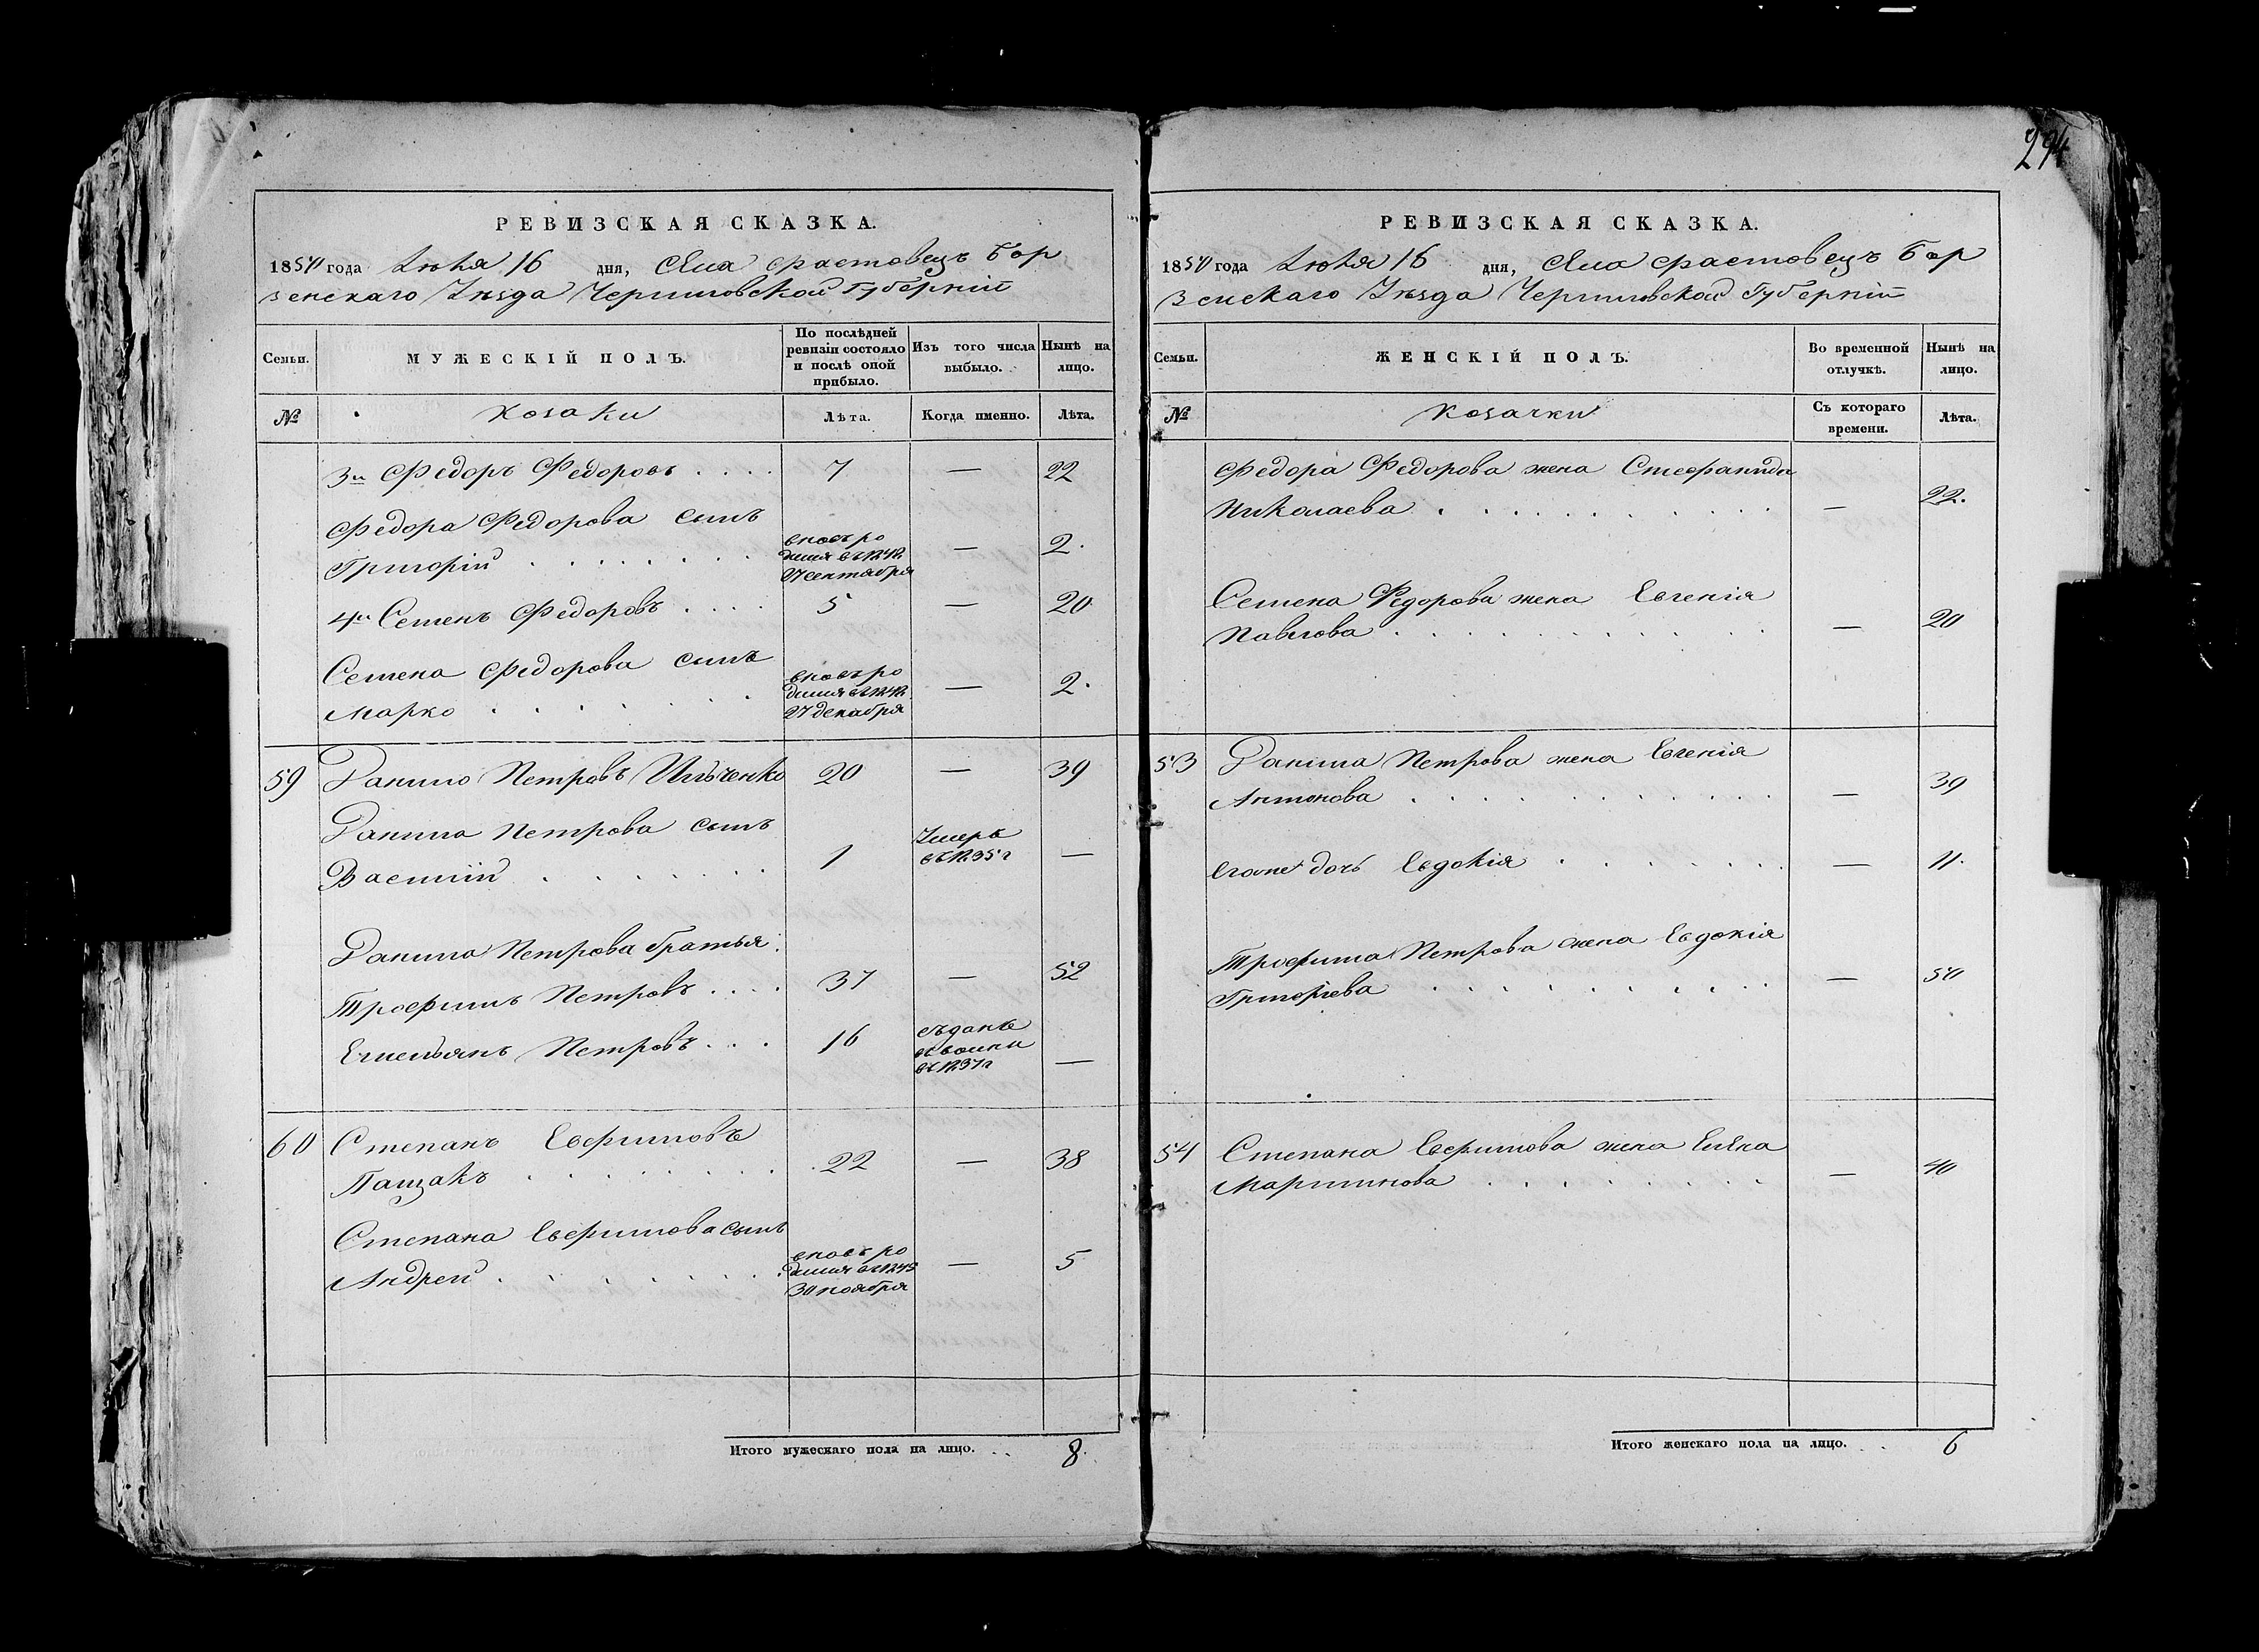 294
РЕВИЗСКАЯ СКАЗКА.
1850 года Іюля 16 дня, Села Фастовецъ Бор
зенскаго Уѣзда Черниговской Губерніи
Семьи.
МУЖЕСКІЙ ПОЛЪ.
По послѣдней ревизіи состояло и послѣ оной прибыло.
Изъ того числа выбыло.
Нынѣ на лицо.
№ Козаки Лѣта. Когда именно. Лѣта.
3й Федоръ Федоровъ . . . . 7 — 22
Федора Федорова сынъ
Григорій . . . . . . . вновь ро
дился въ 1848
27 сентября — 2.
4й Семенъ Федоровъ . . . . 5 — 20
Семена Федорова сынъ
Марко . . . . . . . вновь ро
дился въ 1848
27 декабря — 2.
59 Данило Петровъ Ильченко 20 — 39
Данила Петрова сынъ
Василій . . . . . . . 1 Умеръ
въ 1835 г —
Данила Петрова братья:
Трофимъ Петровъ . . . . 37 — 52
Емельянъ Петровъ . . . 16 съданъ
въ воины
въ 1837 г —
60 Степанъ Евфимовъ
Пащакъ . . . . . . . . 22 — 38
Степана Евфимова сынъ
Андрей . . . . . . . . вновь ро
дился въ 1845
30 ноября — 5
Итого мужескаго пола на лицо. . . 8.
РЕВИЗСКАЯ СКАЗКА.
1850 года Іюля 16 дня, Села Фастовецъ Бор
зенскаго Уѣзда Черниговской Губерніи
Семьи.
ЖЕНСКІЙ ПОЛЪ.
Во временной отлучкѣ.
Нынѣ на лицо.
№ Козачки Съ котораго времени. Лѣта.
Федора Федорова жена Стефанида
Николаева . . . . . . . . . . — 22.
Семена Федорова жена Евгенія
Павлова . . . . . . . . . . — 20
53 Данила Петрова жена Евгенія
Антонова . . . . . . . . . . — 39
Егоже дочь Евдокія . . . . . . . — 11.
Трофима Петрова жена Евдокія
Григорьева . . . . . . . . . . — 50
54 Степана Евфимова жена Елена
Мартинова . . . . . . . . — 40
Итого женскаго пола на лицо. . . 6